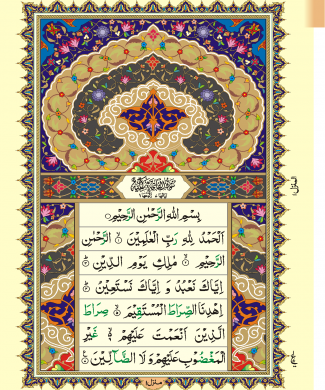 بِسْمِ اللهِ الرَّحْمٰنِ الرَّحِيْمِ
اَلْحَمْدُ لِلّٰهِ رَبِّ الْعٰلَمِيْنَ ۙ الرَّحْمٰنِ
الرَّحِيْمِ ۙ مٰلِكِ يَوْمِ الدِّيْنِ ؕ
اِيَّاكَ نَعْبُدُ وَ اِيَّاكَ نَسْتَعِيْنُ ؕ
اِهْدِنَا الصِّرَاطَ الْمُسْتَقِيْمَ ۙ صِرَاطَ
الَّذِيْنَ اَنْعَمْتَ عَلَيْهِمْ ۙ غَيْرِ
الْمَغْضُوْبِ عَلَيْهِمْ وَ لَا الضَّآلِّيْنَ
منزل